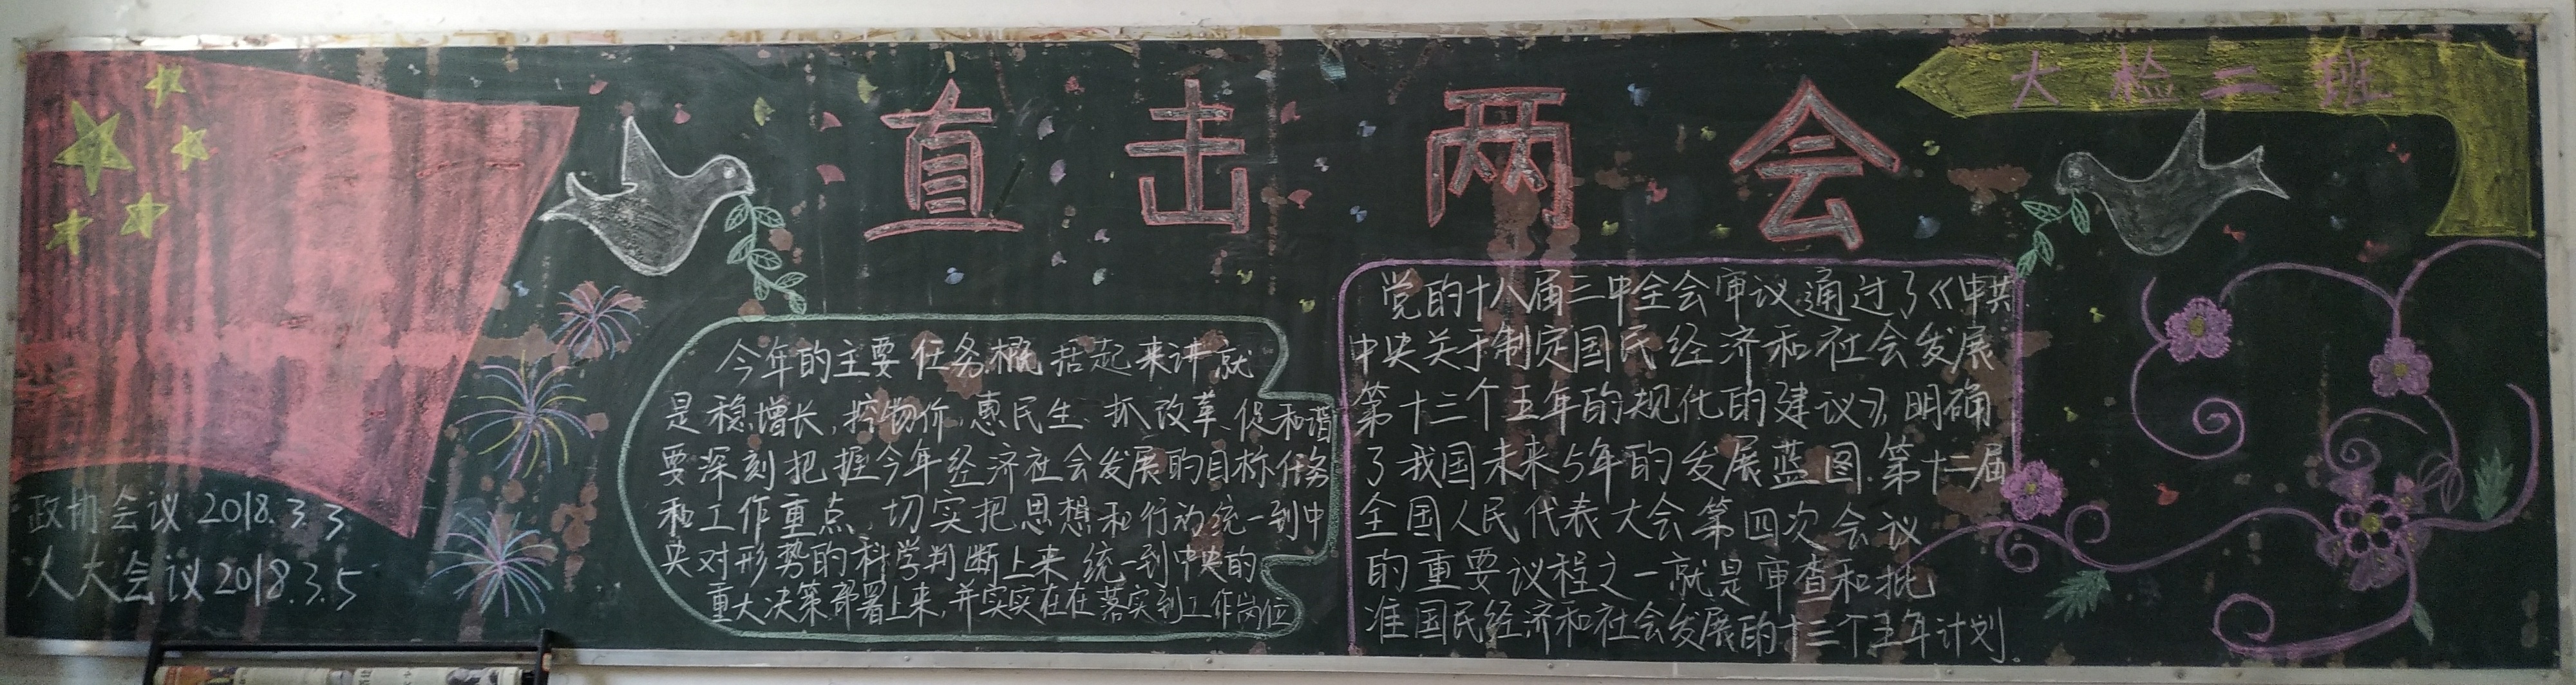 直击两会
大检二班
政协会议 2018.3.3
人大会议 2018.3.5
今年的主要任务,概括起来讲就
是稳增长,控物价,惠民生、抓改革、促和谐
要深刻把握今年经济社会发展的目标任务
和工作重点,切实把思想和行为统一到中
央对形势的科学判断上来,统一到中央的
重大决策部署上来,并实实在在落实到工作岗位
党的十八届三中全会审议通过了《中共
中央关于制定国民经济和社会发展
第十三个五年的规化的建议》,明确
了我国未来5年的发展蓝图.第十二届
全国人民代表大会第四次会议
的重要议程之一就是审查和批
准国民经济和社会发展的十三个五年计划.